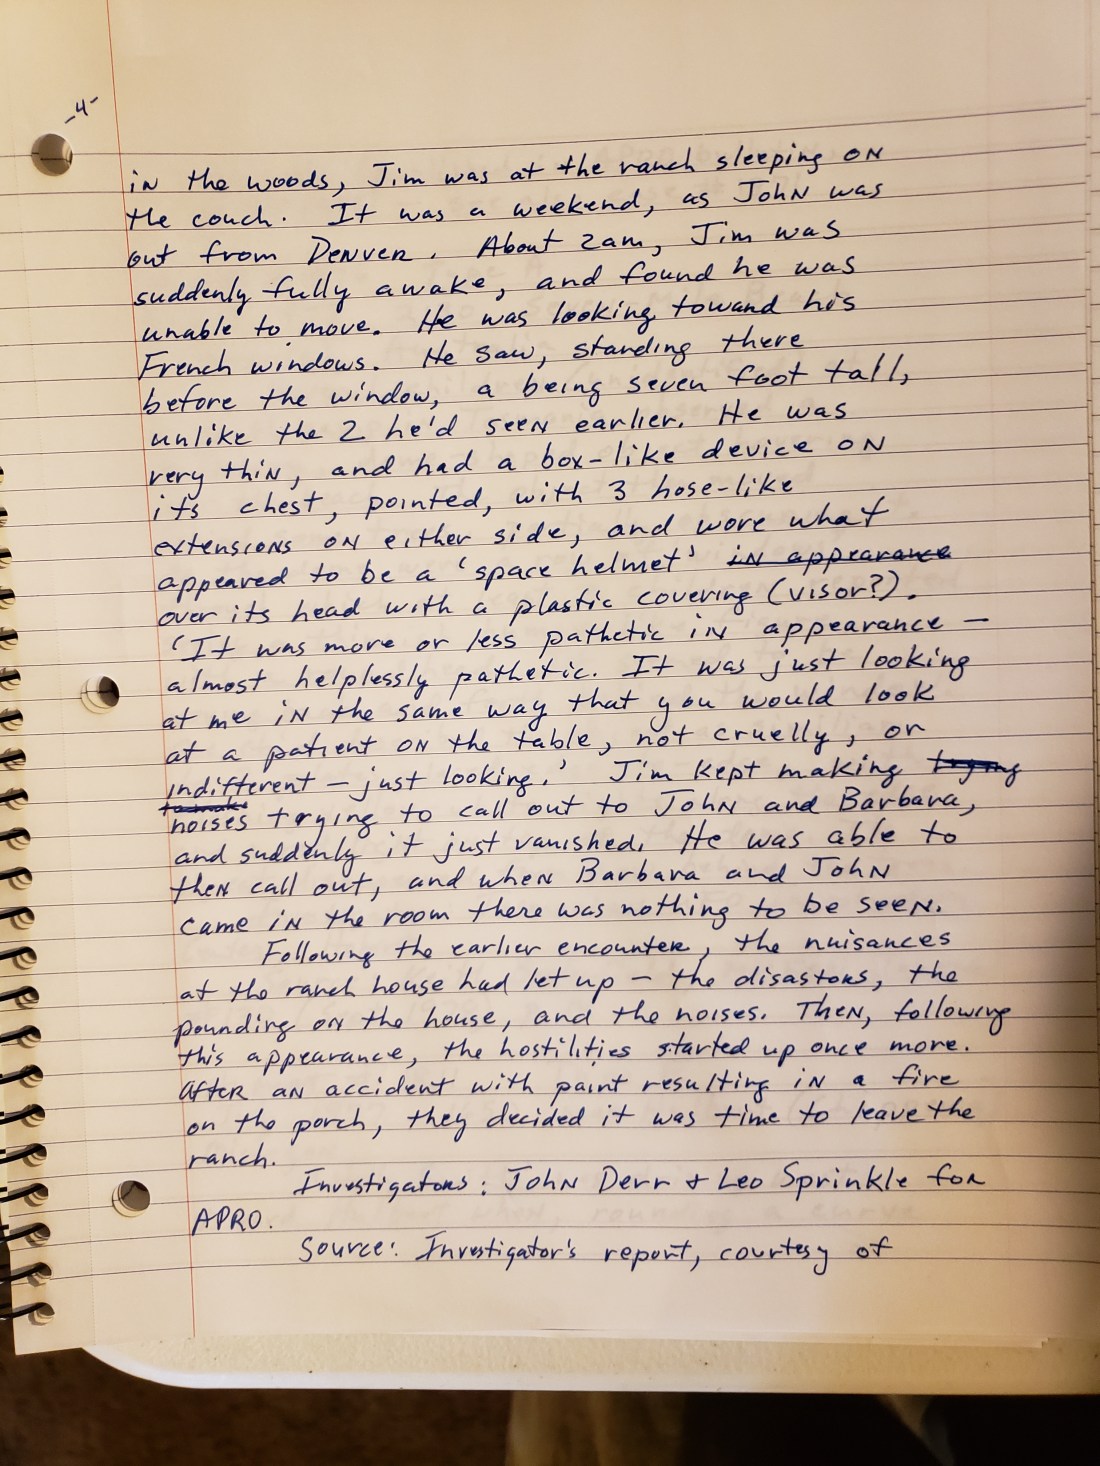 -4-
in the woods, Jim was at the ranch sleeping on
the couch. It was a weekend, as John was
out from Denver. About 2am, Jim was
suddenly fully awake, and found he was
unable to move. He was looking toward his
French windows. He saw, standing there
before the window, a being seven foot tall,
unlike the 2 he'd seen earlier. He was
very thin, and had a box-like device on
its chest, pointed, with 3 hose-like
extensions on either side, and wore what
appeared to be a 'space helmet' in appearance
over its head with a plastic covering (visor?).
'It was more or less pathetic in appearance —
almost helplessly pathetic. It was just looking
at me in the same way that you would look
at a patient on the table, not cruelly, or
indifferent — just looking.' Jim kept making trying
to make
noises trying to call out to John and Barbara,
and suddenly it just vanished. He was able to
then call out, and when Barbara and John
came in the room there was nothing to be seen.
Following the earlier encounter, the nuisances
at the ranch house had let up — the disastors, the
pounding on the house, and the noises. Then, following
this appearance, the hostilities started up once more.
After an accident with paint resulting in a fire
on the porch, they decided it was time to leave the
ranch.
Investigators: John Derr + Leo Sprinkle for
APRO.
Source: Investigator's report, courtesy of